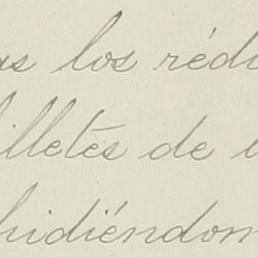 as los rédi
illetes de l
hidiéndom